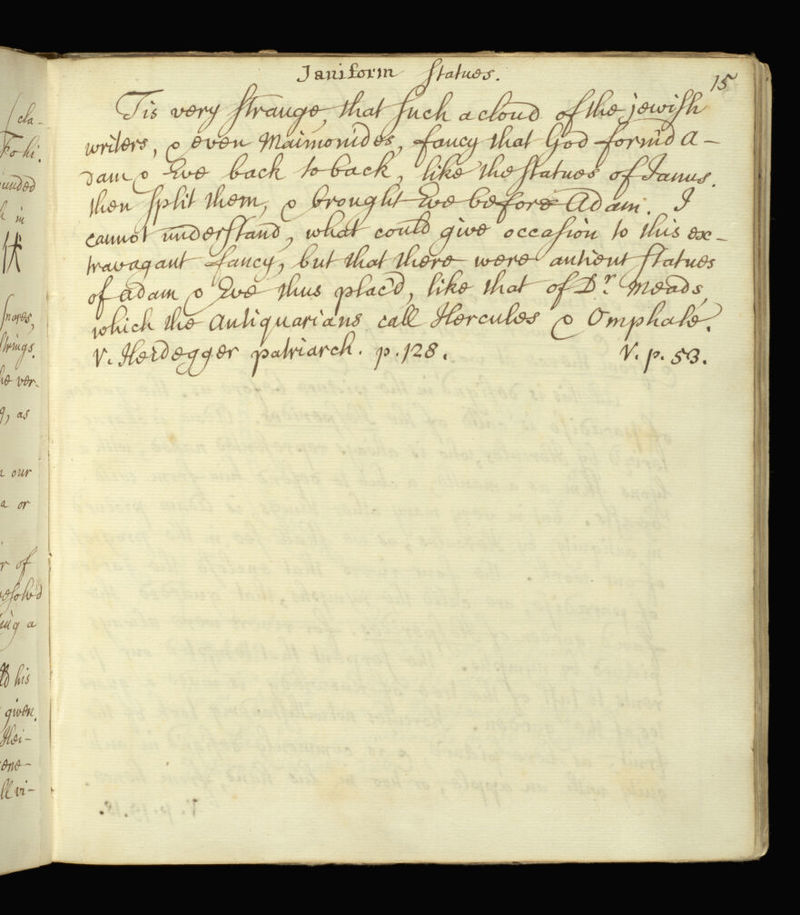 Janiform Statues.
15
Tis very strange, that such a cloud of the jewish
writers, & even Maimonides, fancy that God formd A-
dam & Eve back to back, like the statues of Janus.
then split them, & brought Eve before Adam. I
cannot understand, what could give occasion to this ex-
travagant fancy, but that there were antient statues
of Adam & Eve thus plac'd, like that of Dr. Meads,
which the Antiquarians call Hercules & Omphale.
V. Heidegger patriarch. p. 128. V. p. 53.
(cla-
Fohi.
unded
in
snores,
strings.
he ver-
g, as
our
a or
r of
resolv'd
ing a
his
given.
Hei-
ene-
ll vi-